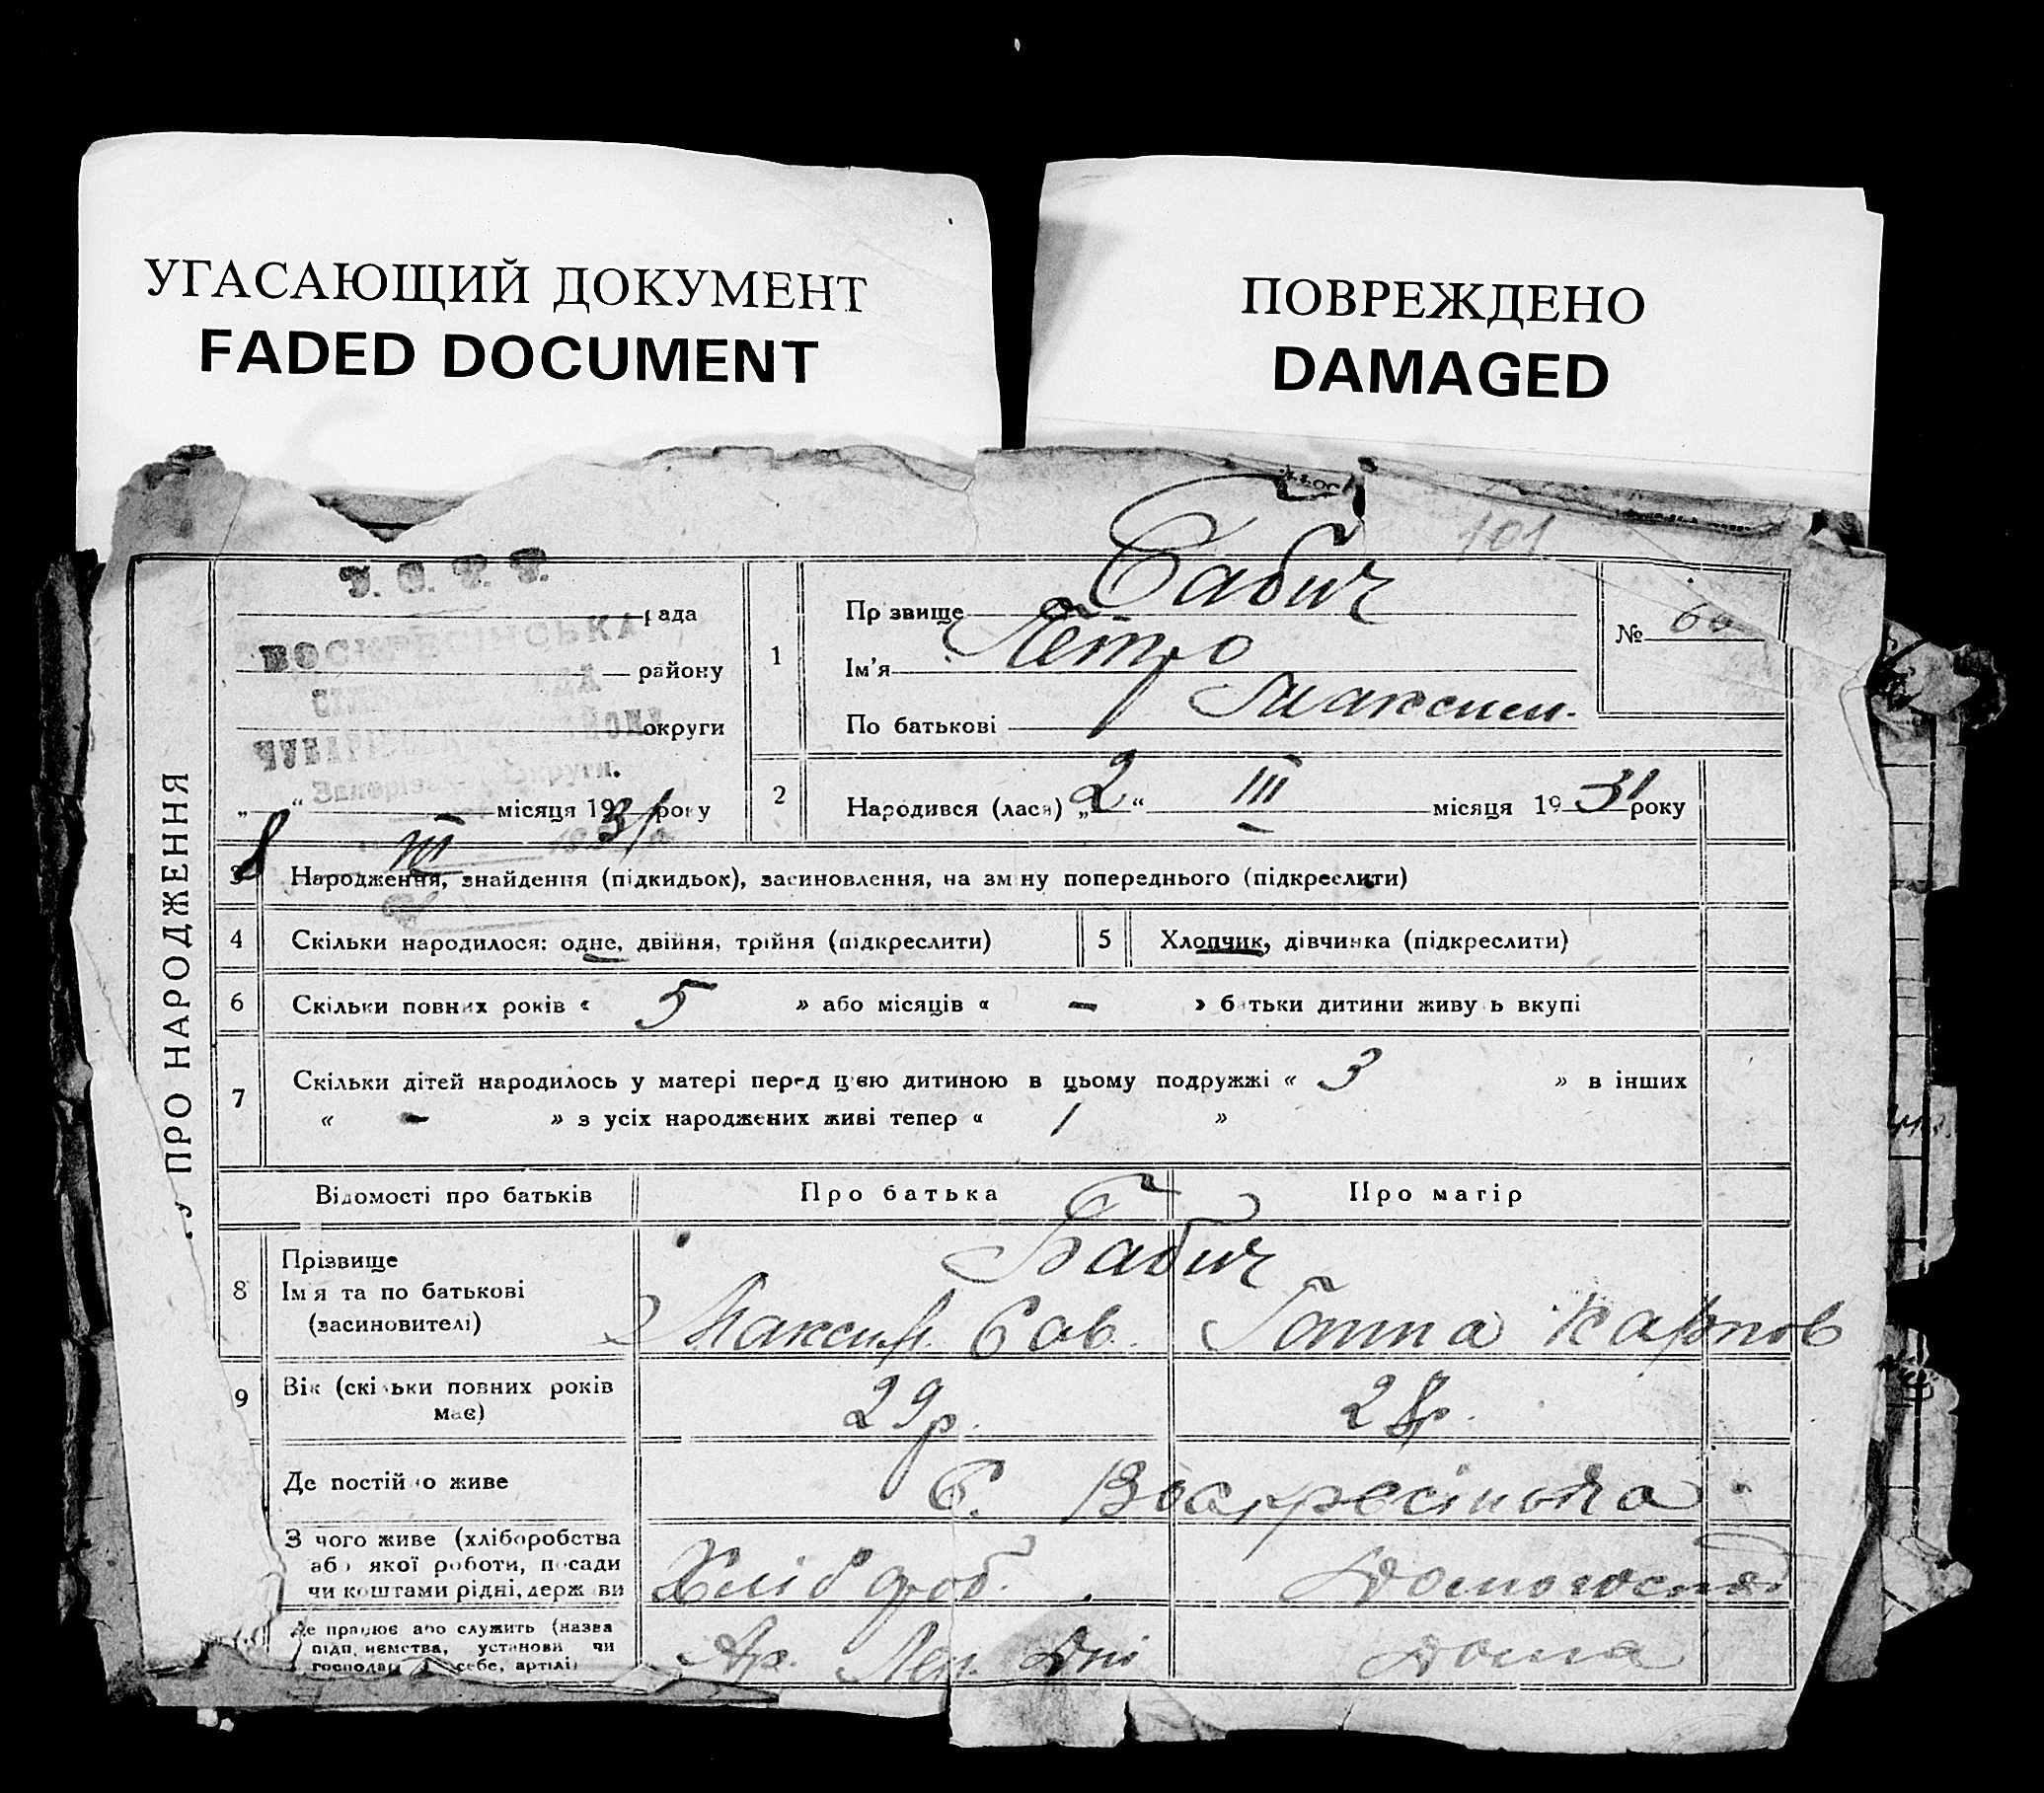 УГАСАЮЩИЙ ДОКУМЕНТ
FADED DOCUMENT
ПОВРЕЖДЕНО
DAMAGED
101
У. С. Р. Р.
рада
ВОСКРЕСІНСЬКА
району
округи
Запорізь округи.
„ 8 “ III місяця 1931 року
У ПРО НАРОДЖЕННЯ
1
Пр звище Бабич
Ім'я Петро
По батькові Максим.
№ 60
2
Народився (лася) „ 2 “ III місяця 19 31 року
3 Народження, знайдення (підкидьок), засиновлення, на зм ну попереднього (підкреслити)
4 Скільки народилося: одне, двійня, трійня (підкреслити)
5 Хлопчик, дівчинка (підкреслити)
6 Скільки повних років « 5 » або місяців « – » б тьки дитини живу ь вкупі
7 Скільки дітей народилось у матері перед цією дитиною в цьому подружжі « 3 » в інших
« – » з усіх народжених живі тепер « 1 »
Відомості про батьків Про батька Про матір
8 Прізвище Бабич
Ім'я та по батькові
(засиновителі) Максим. Сав. Ганна Карпов
9 Вік (скільки повних років
має) 29 р. 28 р.
Де постій о живе С. Воскресінська
З чого живе (хліборобства
або якої роботи, посади
чи коштами рідні, держ ви Хлібороб. Домогосп
Де працює або служить (назва
підп иємства, установи чи
господар себе, артілі) Ар. Лен. Дні Дома